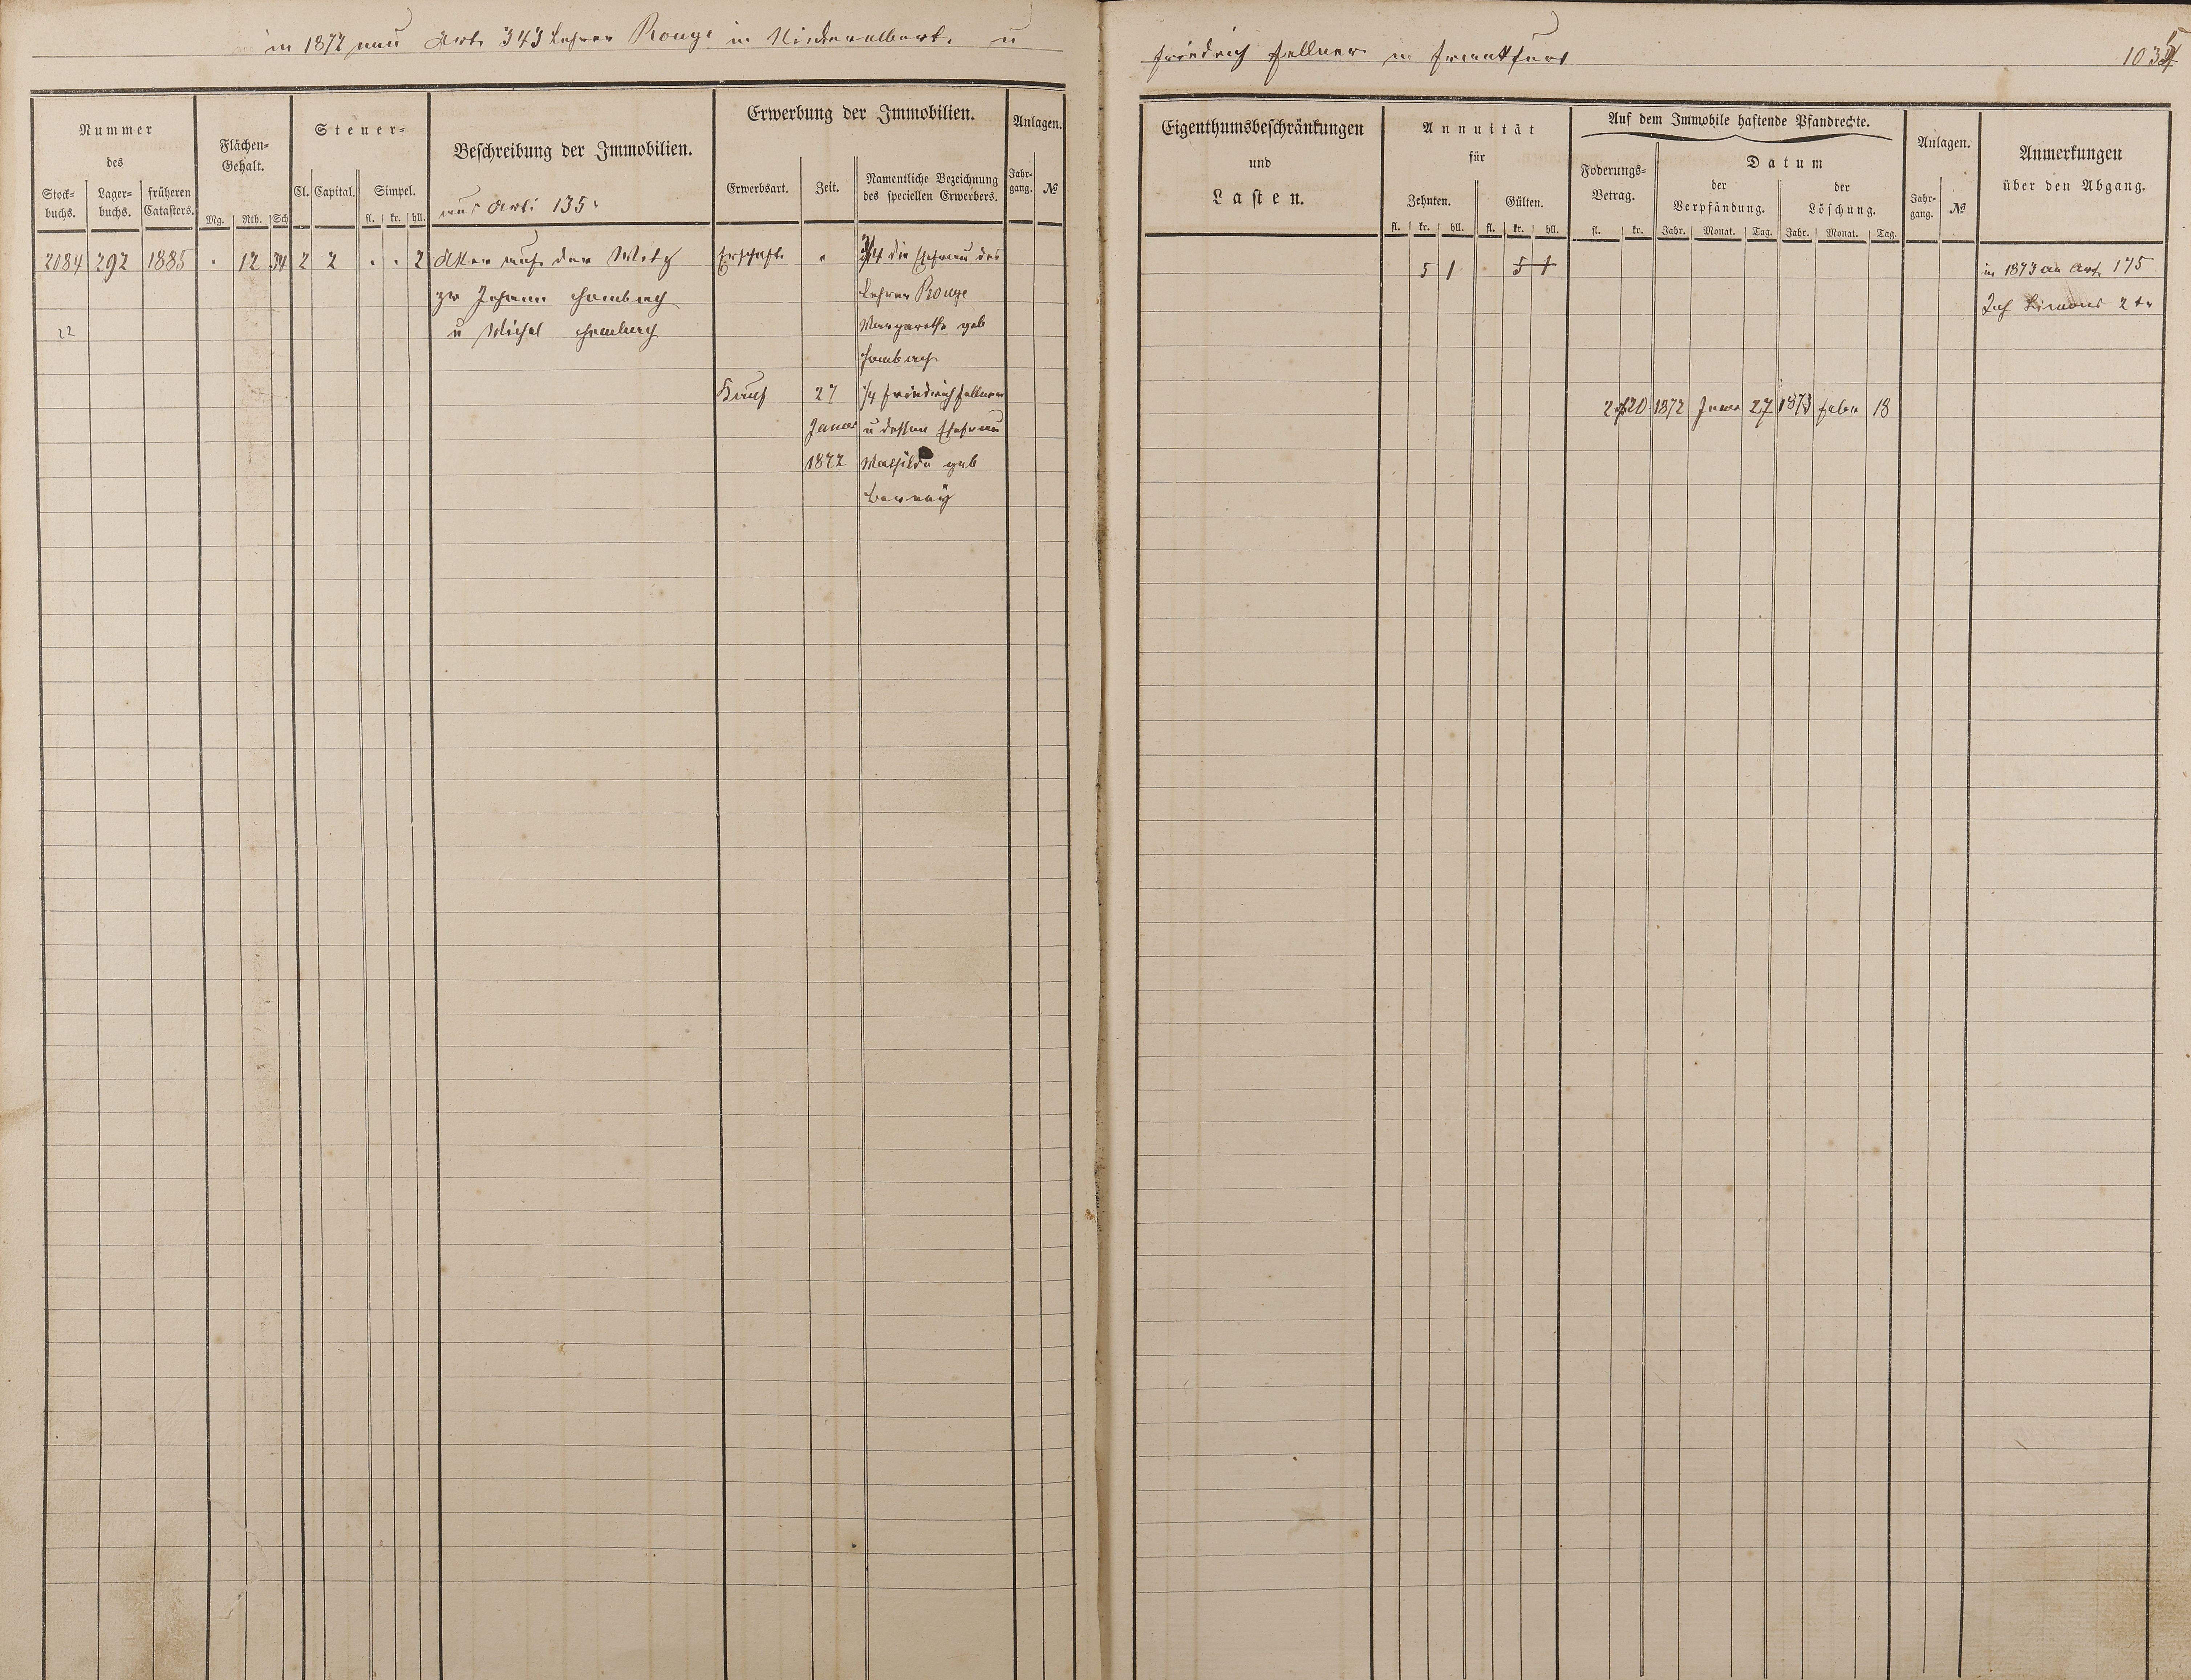 in 1872 neu Art. 343 Lehrer Rouge in Niederelbert. u
Friedrich Fellner in Frankfurt
Nummer
des
Stock-
buchs.
Lager-
buchs.
früheren
Catasters.
Flächen-
Gehalt.
Mg. Rth. Sch
Steuer-
Cl. Capital. Simpel.
fl. kr. hll.
Beschreibung der Immobilien.
aus Art: 135.
Erwerbung der Immobilien.
Erwerbsart. Zeit.
Namentliche Bezeichnung
des speciellen Erwerbers.
Anlagen.
Jahr-
gang. №
2084 292 1885 . 12 34 2 2 . . 2 Acker auf der Erbschaft " 3/4 die Ehefrau des
zw Johann Hombach Lehrer Rouge
22 u Michel Margarethe geb
Hombach
Kauf 27 1/4 Friedrich Fellner
Januar u dessen Ehefrau
1872 Mathilde geb
Eigenthumsbeschränkungen
und
Lasten.
Annuität
für
Zehnten. Gülten.
fl. kr. hll. fl. kr. hll.
Auf dem Immobile haftende Pfandrechte.
Foderungs-
Betrag.
fl. kr.
Datum
der
Verpfändung.
der
Löschung.
Jahr. Monat. Tag. Jahr. Monat. Tag.
Anlagen.
Jahr-
gang. №
Anmerkungen
über den Abgang.
5 1 5 1 in 1873 an Art. 175
20 1872 Januar 27 1873 Febr 18